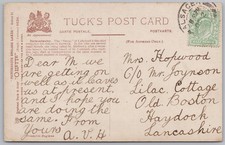 TUCK'S POST CARD
CARTE POSTALE
POSTKARTE
ALSAGER
Dear M we
are getting on
well as it leaves
us at present,
and I hope you
are doing the
same. From
Yours
A. V. H
Mrs Hopwood
C/o Mr. Joynson
Lilac. Cottage
Old. Boston
Haydock
Lancashire